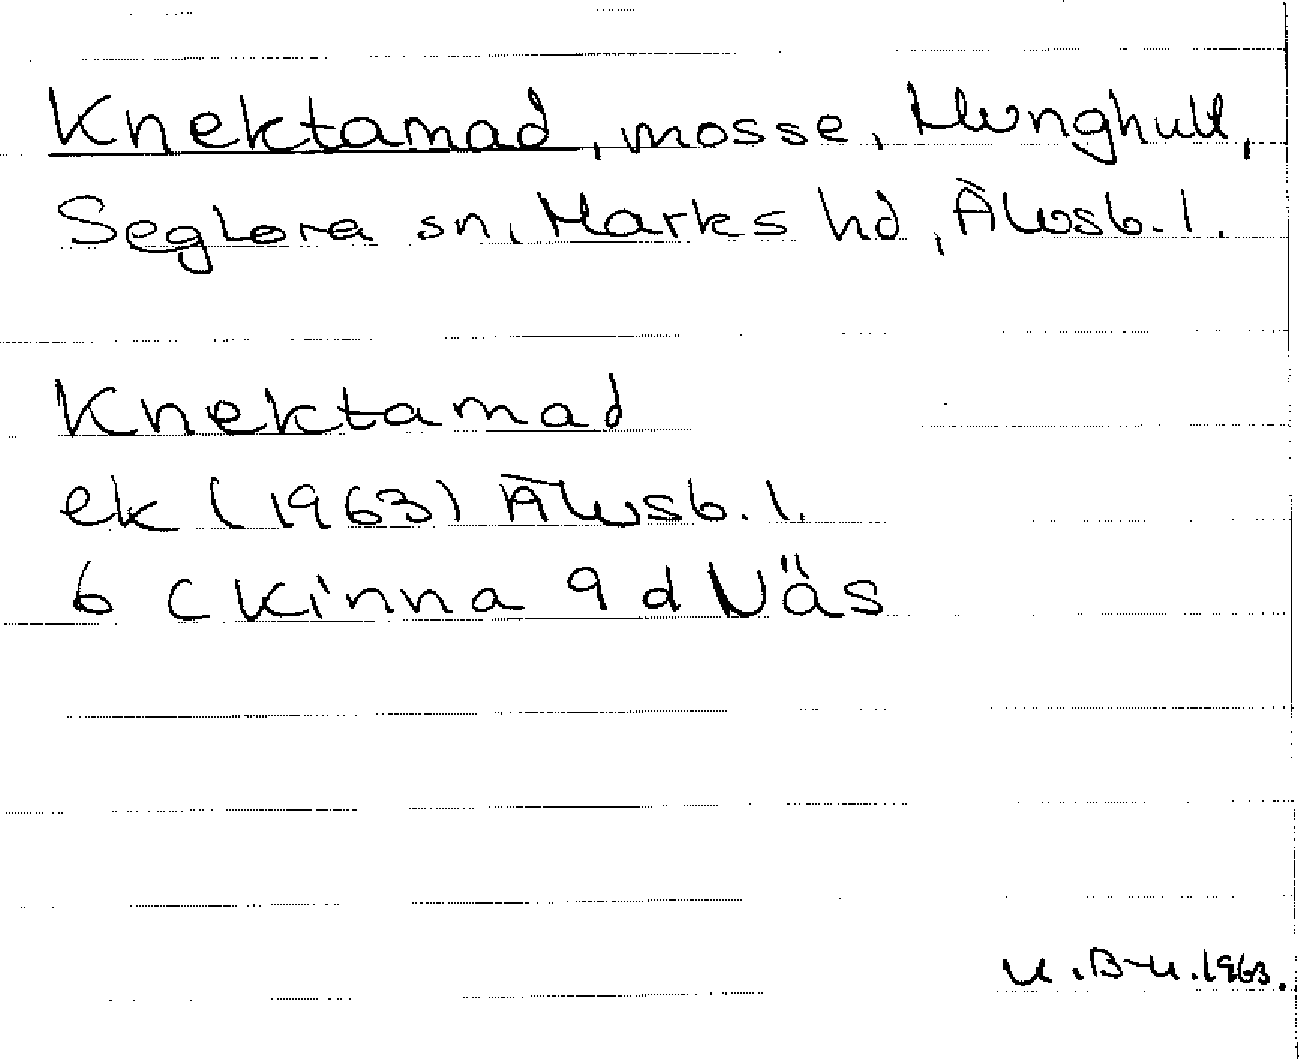 Knektamad, mosse, Hunghult,
Seglora sn, Marks hd, Älvsb. l.
Knektamad
ek (1963) Älvsb. l.
6 C Kinna 9 d Näs
U. B-U. 1963.